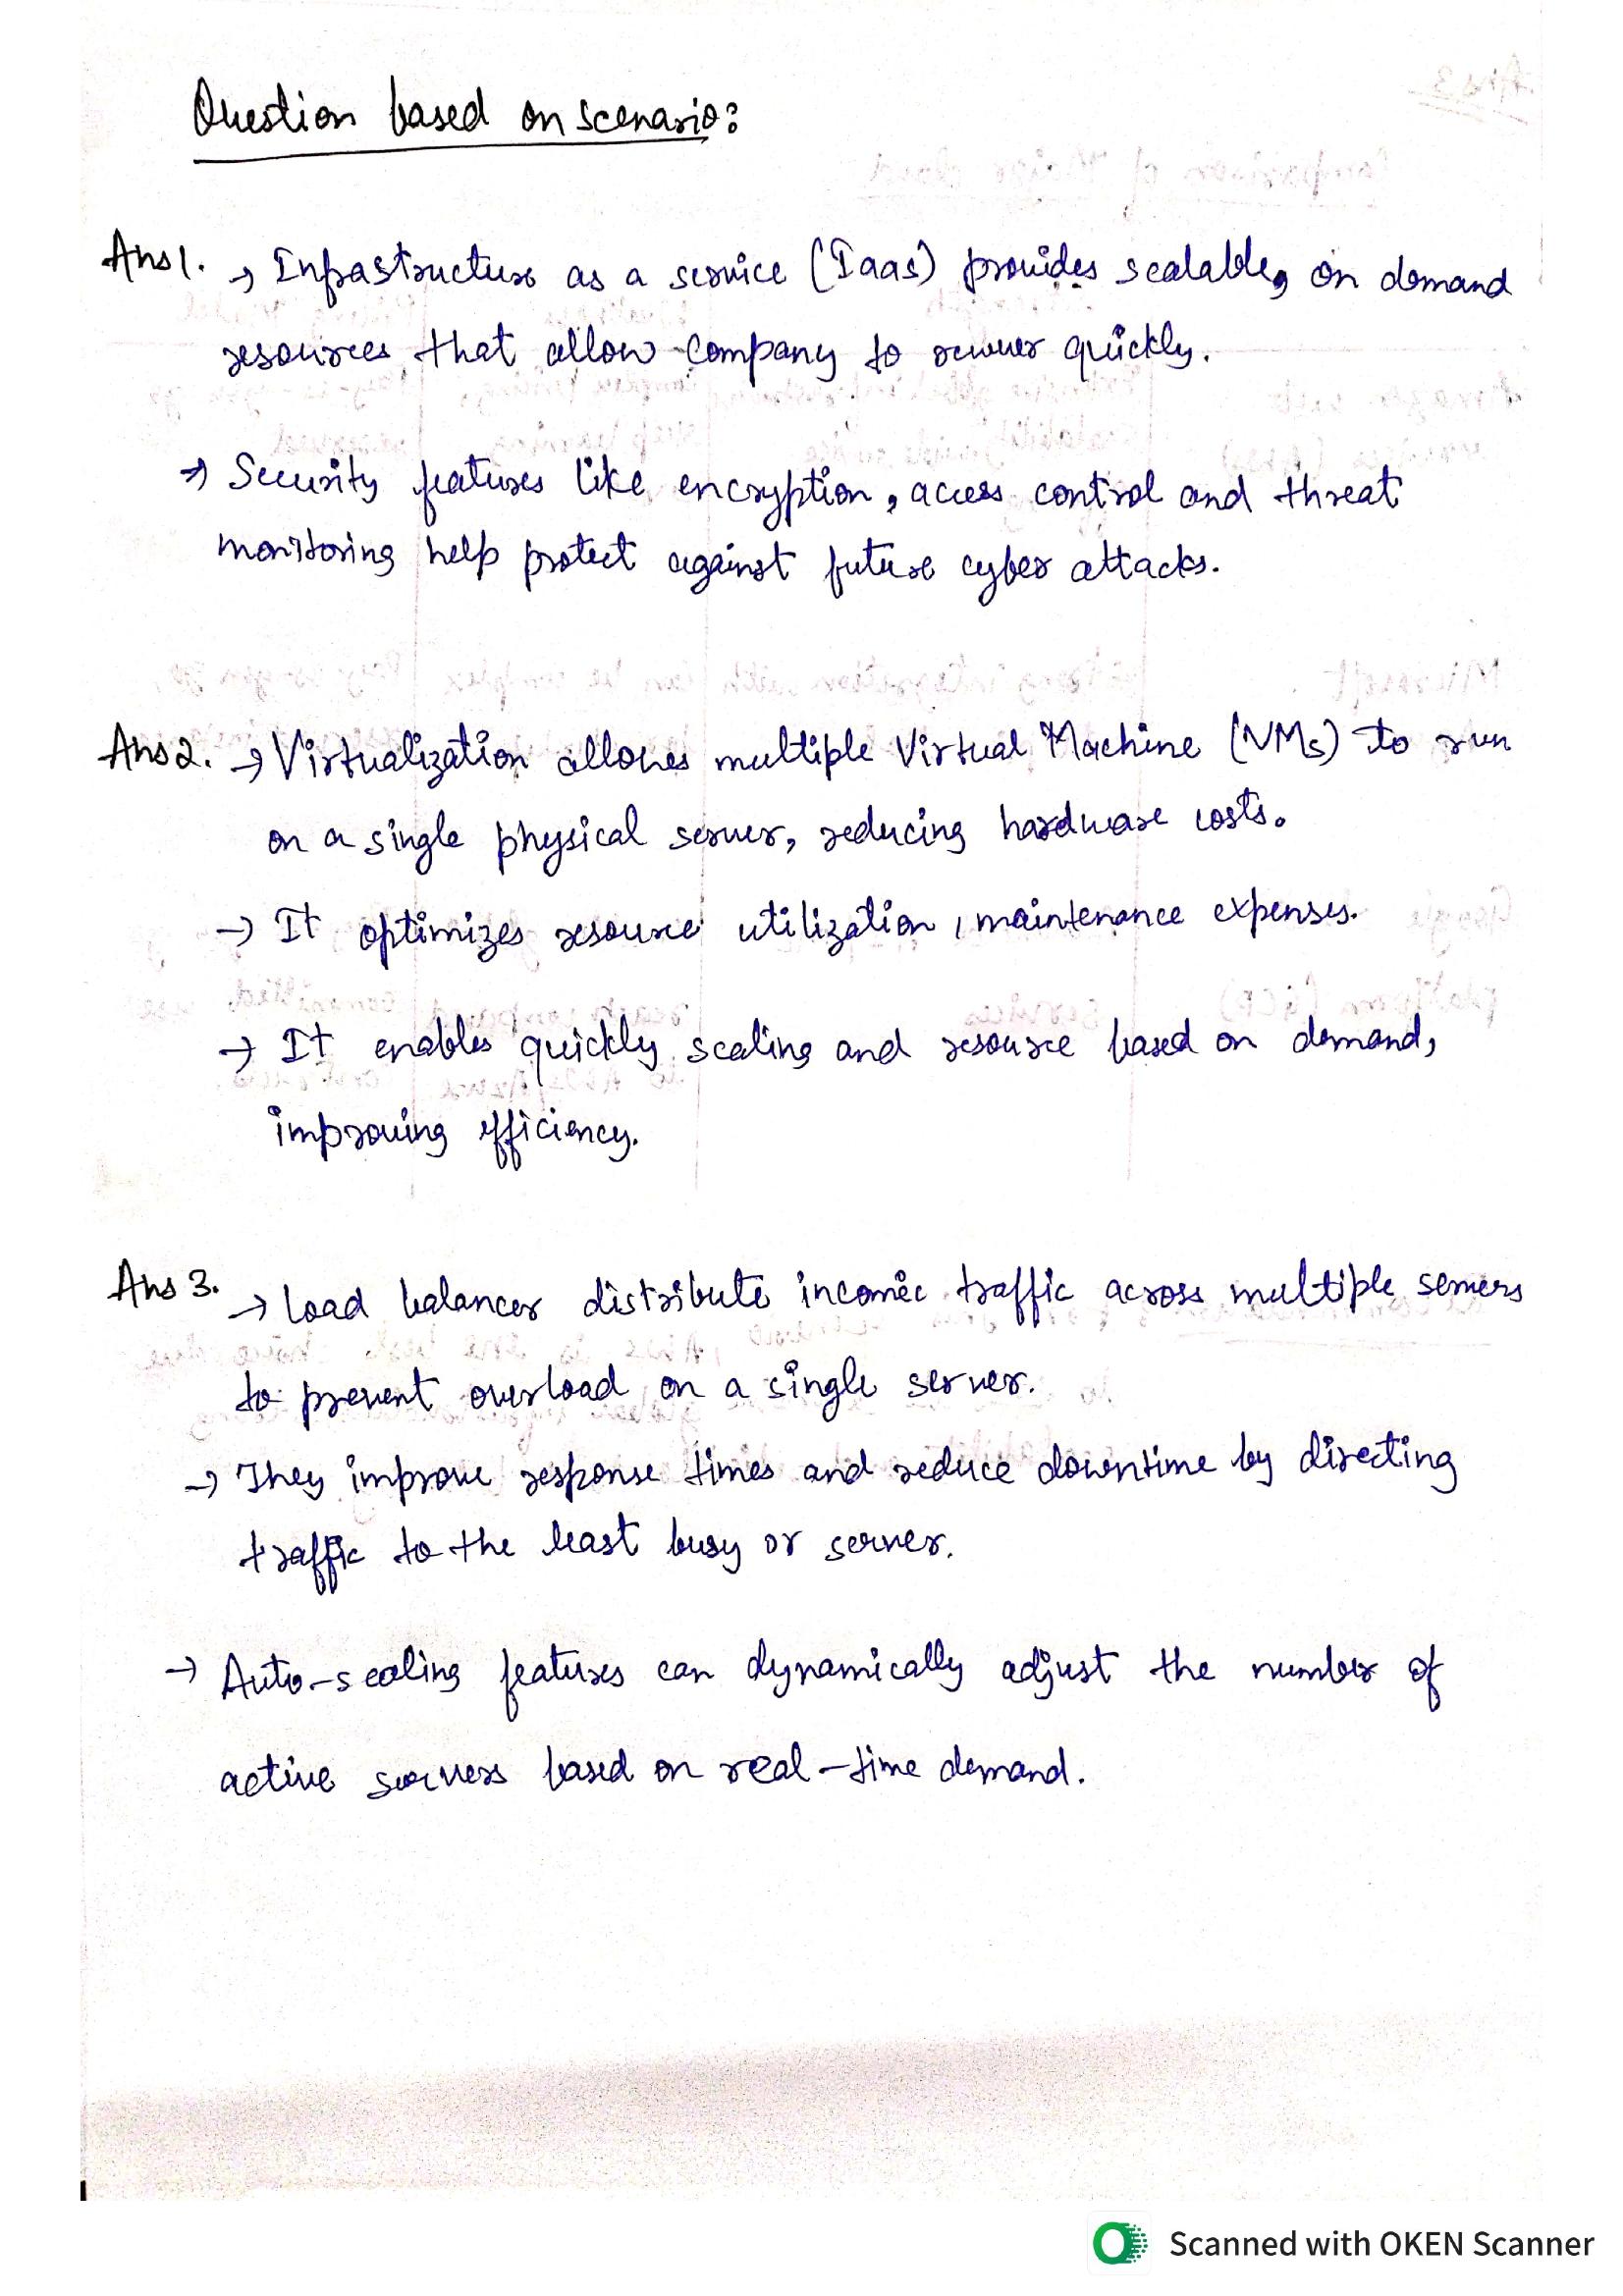 Question based on scenario:
Ans1. → Infrastructure as a service (Iaas) provides scalable, on demand
resources that allow company to recover quickly.
→ Security features like encryption, access control and threat
monitoring help protect against future cyber attacks.
Ans2. → Virtualization allows multiple Virtual Machine (VMs) to run
on a single physical server, reducing hardware costs.
→ It optimizes resource utilization, maintenance expenses.
→ It enables quickly scaling and resource based on demand,
improving efficiency.
Ans 3. → Load balancer distribute traffic across multiple servers
to prevent overload on a single server.
→ They improve response times and reduce downtime by directing
traffic to the least busy or server.
→ Auto-scaling features can dynamically adjust the number of
active servers based on real-time demand.
Scanned with OKEN Scanner